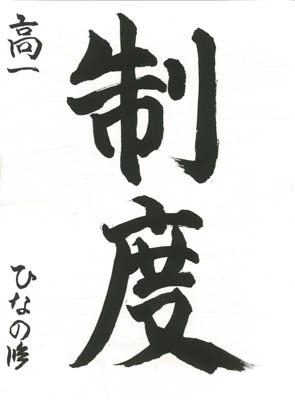 制度
高一
ひなの